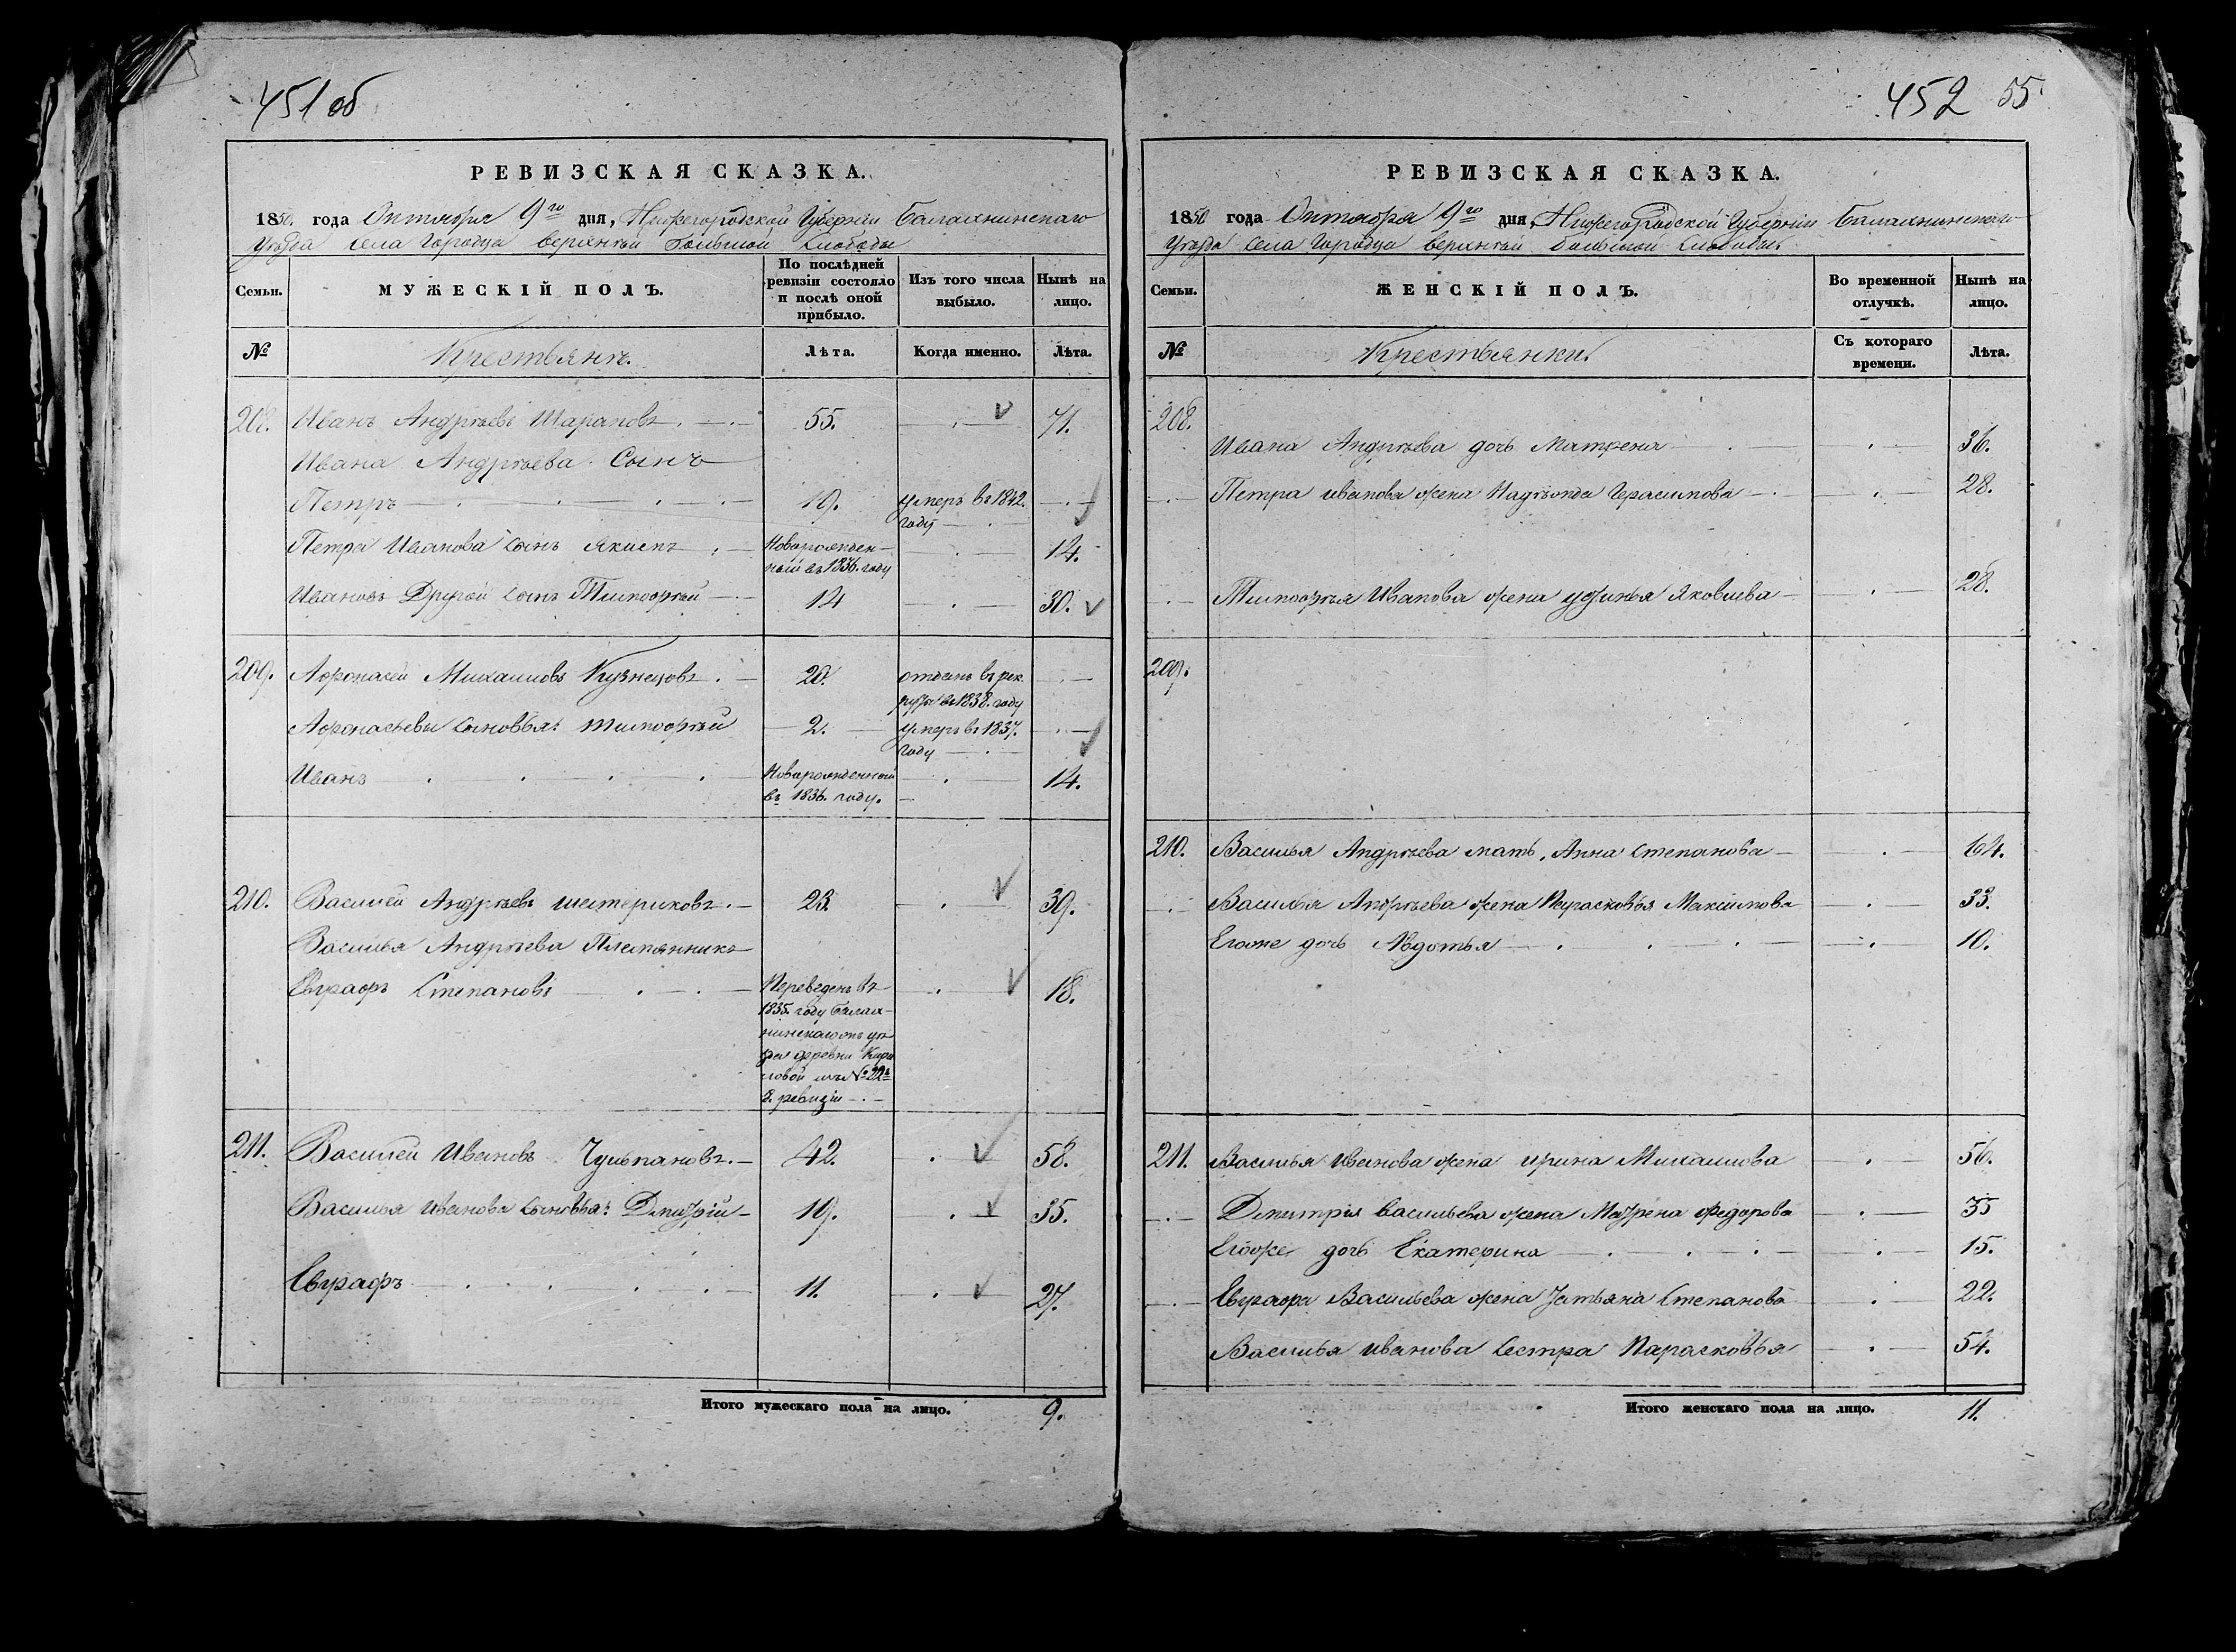 451 об
РЕВИЗСКАЯ СКАЗКА.
1850. года Октября 9го дня, Нижегородской Губернии Балахнинскаго
Уѣзда села Городца верхней большой слободы
Семьи.
МУЖЕСКІЙ ПОЛЪ.
По послѣдней ревизіи состояло и послѣ оной прибыло.
Изъ того числа выбыло.
Нынѣ на лицо.
№
Крестьянъ.
Лѣта.
Когда именно.
Лѣта.
208. Иванъ Андрѣевъ Шараповъ. 55. 71.
Ивана Андрѣева Сынъ
Петръ 19. умеръ въ 1842. году
Петра Иванова сынъ Якимъ Новорожденный въ 1836. году 14.
Ивановъ Другой сынъ Тимофѣй 14 30.
209. Афонасей Михаиловъ Кузнецовъ. 20. отданъ въ рекруты въ 1838. году
Афонасьевы сыновья: Тимофѣй 2. умеръ въ 1837. году
Иванъ Новорожденный въ 1836. году. 14.
210. Василей Андрѣевъ шатериковъ. 23. 39.
Василья Андрѣева Племянникъ
Евграфъ Степановъ Переведенъ въ 18.
1835. году Балах-
нинскаго уѣ-
зда деревни
ловой №22
8. ревизіи
211. Василей Ивановъ Чульпановъ. 42. 58.
Василья Иванова сыновья: Дмитрій 19. 35.
Евграфъ 11. 27.
Итого мужескаго пола на лицо. 9.
452 55
РЕВИЗСКАЯ СКАЗКА.
1850 года Октября 9го дня, Нижегородской Губерніи Балахнинскаго
Уѣзда села Городца верхней большой слободы
Семьи.
ЖЕНСКІЙ ПОЛЪ.
Во временной отлучкѣ.
Нынѣ на лицо.
№
Крестьянки.
Съ котораго времени.
Лѣта.
208.
Ивана Андрѣева дочь Матрена 36.
Петра иванова жена Надѣжда Герасимова 28.
Тимофѣя Иванова жена уфинья Яковлева 28.
209.
210. Василья Андрѣева мать, Анна Степанова 64.
Василья Андрѣева жена Парасковья Максимова 33.
Егоже дочь Авдотья 10.
211. Василья Иванова жена ирина Михаилова 56.
Дмитрія васильева жена Матрена Федорова 35
Егоже дочь Екатерина 15.
Евграфа Васильева жена Татьяна Степанова 22.
Василья иванова Сестра Парасковья 54.
Итого женскаго пола на лицо. 11.